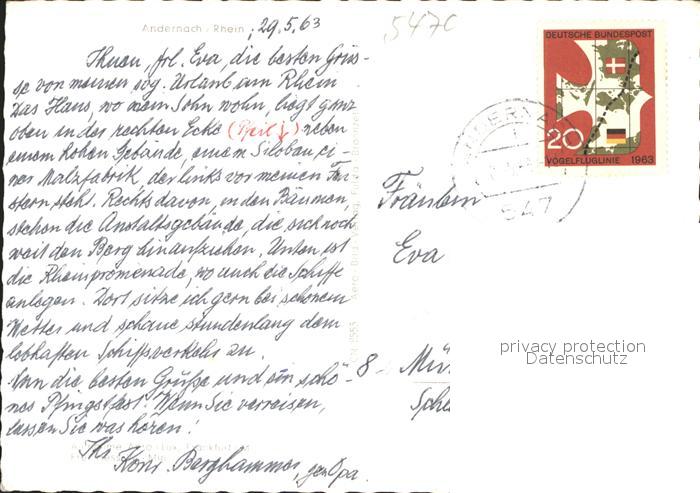 Andernach / Rhein, 29.5.63
5470
Ihnen, frl. Eva, die besten Grüs-
se von meinem sog. Urlaub am Rhein
Das Haus, wo mein Sohn wohn, liegt ganz
oben in der rechten Ecke (Pfeil ↓) neben
einem hohen Gebäude, einem Silobau ei-
ner Malzfabrik, der links vor meinem Fen-
stern steht. Rechts davon, in den Bäumen,
stehen die Anstaltsgebäude, die sich noch
weit den Berg hinaufziehen. Unten ist
die Rheinpromenade, wo auch die Schiffe
anlegen. Dort sitze ich gern bei schönem
Wetter und schaue stundenlang dem
lebhaften Schiffsverkehr zu.
Nun die besten Grüße und ein schö-
nes Pfingstfest! Wenn Sie verreisen,
lassen Sie was hören!
Ihr
Konr. Berghammer, gen. Opa.
DEUTSCHE BUNDESPOST
20
VOGELFLUGLINIE 1963
547
Fräulein
Eva
8 - Mün
privacy protection
Datenschutz